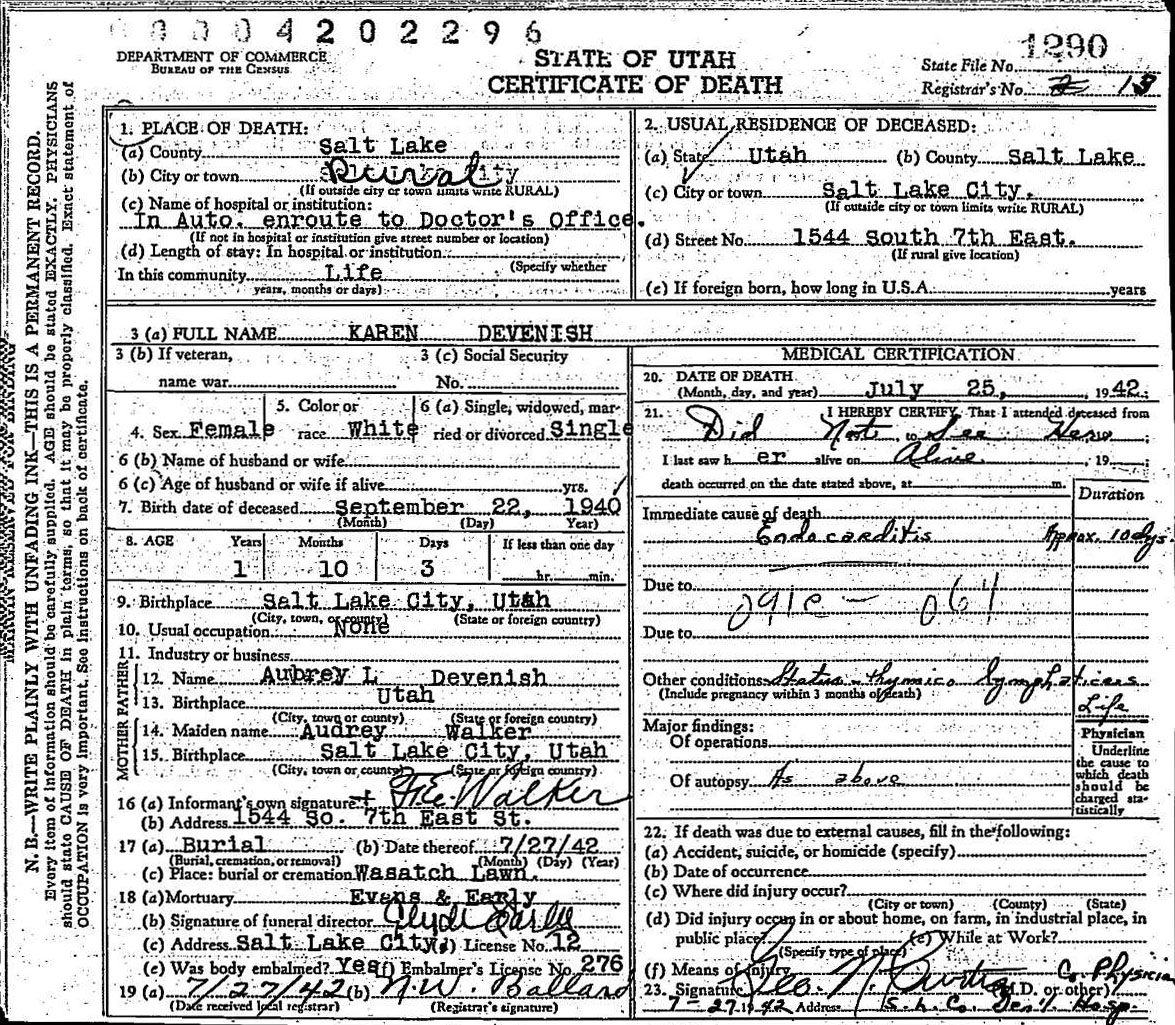 0004202296
1290
DEPARTMENT OF COMMERCE
BUREAU OF THE CENSUS
STATE OF UTAH
CERTIFICATE OF DEATH
State File No.
Registrar's No. 13
N. B.—WRITE PLAINLY WITH UNFADING INK—THIS IS A PERMANENT RECORD.
Every item of information should be carefully supplied. AGE should be stated EXACTLY. PHYSICIANS
should state CAUSE OF DEATH in plain terms, so that it may be properly classified. Exact statement of
OCCUPATION is very important. See instructions on back of certificate.
1. PLACE OF DEATH:
(a) County Salt Lake
(b) City or town Rural
(If outside city or town limits write RURAL)
(c) Name of hospital or institution:
In Auto. enroute to Doctor's Office.
(If not in hospital or institution give street number or location)
(d) Length of stay: In hospital or institution
(Specify whether
In this community Life
years, months or days)
2. USUAL RESIDENCE OF DECEASED:
(a) State Utah (b) County Salt Lake
(c) City or town Salt Lake City.
(If outside city or town limits write RURAL)
(d) Street No. 1544 South 7th East.
(If rural give location)
(e) If foreign born, how long in U.S.A. years
3 (a) FULL NAME KAREN DEVENISH
3 (b) If veteran, 3 (c) Social Security
name war No.
4. Sex Female 5. Color or race White 6 (a) Single, widowed, married or divorced Single
6 (b) Name of husband or wife
6 (c) Age of husband or wife if alive yrs.
7. Birth date of deceased September 22, 1940
(Month) (Day) Year)
8. AGE Years Months Days If less than one day
1 10 3 hr. min.
9. Birthplace Salt Lake City, Utah
(City, town, or county) (State or foreign country)
10. Usual occupation None
11. Industry or business
FATHER
12. Name Aubrey L Devenish
13. Birthplace Utah
(City, town or county) (State or foreign country)
MOTHER
14. Maiden name Audrey Walker
15. Birthplace Salt Lake City, Utah
(City, town or county) (State or foreign country)
16 (a) Informant's own signature Walker
(b) Address 1544 So. 7th East St.
17 (a) Burial (b) Date thereof 7/27/42
(Burial, cremation, or removal) (Month) (Day) (Year)
(c) Place: burial or cremation Wasatch Lawn.
18 (a) Mortuary Evans & Early
(b) Signature of funeral director Clyde Early
(c) Address Salt Lake City (d) License No. 12
(e) Was body embalmed? Yes (f) Embalmer's License No. 276
19 (a) 7/27/42 (b) N. W. Ballard
(Date received local registrar) (Registrar's signature)
MEDICAL CERTIFICATION
20. DATE OF DEATH
(Month, day, and year) July 25, 1942.
21. I HEREBY CERTIFY, That I attended deceased from
Did Not to See Her
I last saw h er alive on Alive, 19
death occurred on the date stated above, at m.
Duration
Immediate cause of death
Endocarditis Approx. 10 dys.
Due to 091e - 064
Due to
Other conditions Status-thymico lymphaticus
(Include pregnancy within 3 months of death)
Life
Major findings:
Of operations
Of autopsy As above
Physician
Underline
the cause to
which death
should be
charged sta-
tistically
22. If death was due to external causes, fill in the following:
(a) Accident, suicide, or homicide (specify)
(b) Date of occurrence
(c) Where did injury occur?
(City or town) (County) (State)
(d) Did injury occur in or about home, on farm, in industrial place, in
public place? (e) While at Work?
(Specify type of place)
(f) Means of injury Co. Physician
23. Signature Geo. N. (M.D. or other)
7-27-1942 Address S. L. Co. Gen'l Hosp.